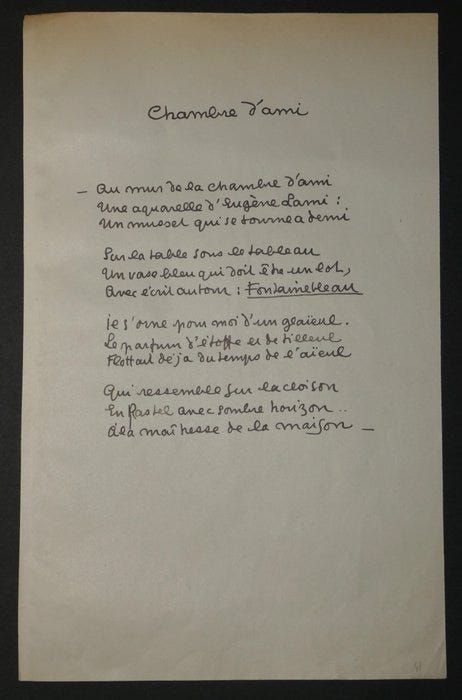 Chambre d'ami
— Au mur de la chambre d'ami
Une aquarelle d'Eugène Lami :
Un musset qui se tourne a demi
Sur la table sous le tableau
Un vase bleu qui doit être un lot,
Avec écrit autour : Fontainebleau
Il s'orne pour moi d'un glaïeul.
Le parfum d'étoffe et de tilleul
Flottait déjà du temps de l'aïeul
Qui ressemble sur la cloison
En Pastel avec sombre horizon ..
à la maîtresse de la maison —